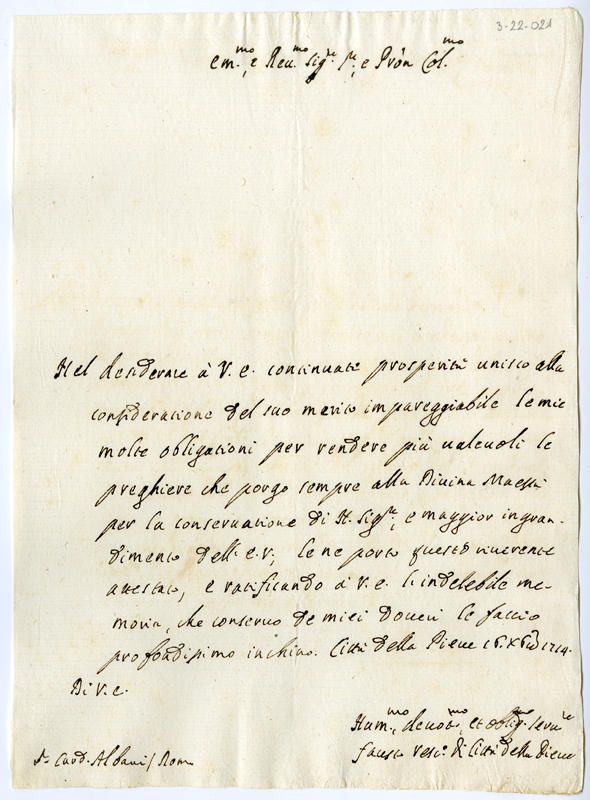 3-22-021
Em.mo e Reu.mo Sig.re e Prōn Col.mo
Nel desiderare à V. E. continuate prosperità unisco alla
consideratione del suo merito impareggiabile le mie
molte obligationi per rendere più ualeuoli le
preghiere che porgo sempre alla Diuina Maestà
per la conseruatione di N. Sig.re, e maggior ingran-
dimento dell' E. V., le ne porto questo riuerente
attestato, e ratificando à V. E. l'indelebile me-
moria, che conseruo de miei doueri le faccio
profondissimo inchino. Città della Pieue 1714.
Di V. E.
Hum.mo deuot.mo, et oblig.mo seru.re
Fausto Vesc.o di Città della Pieue
Sr. Card. Albani / Roma